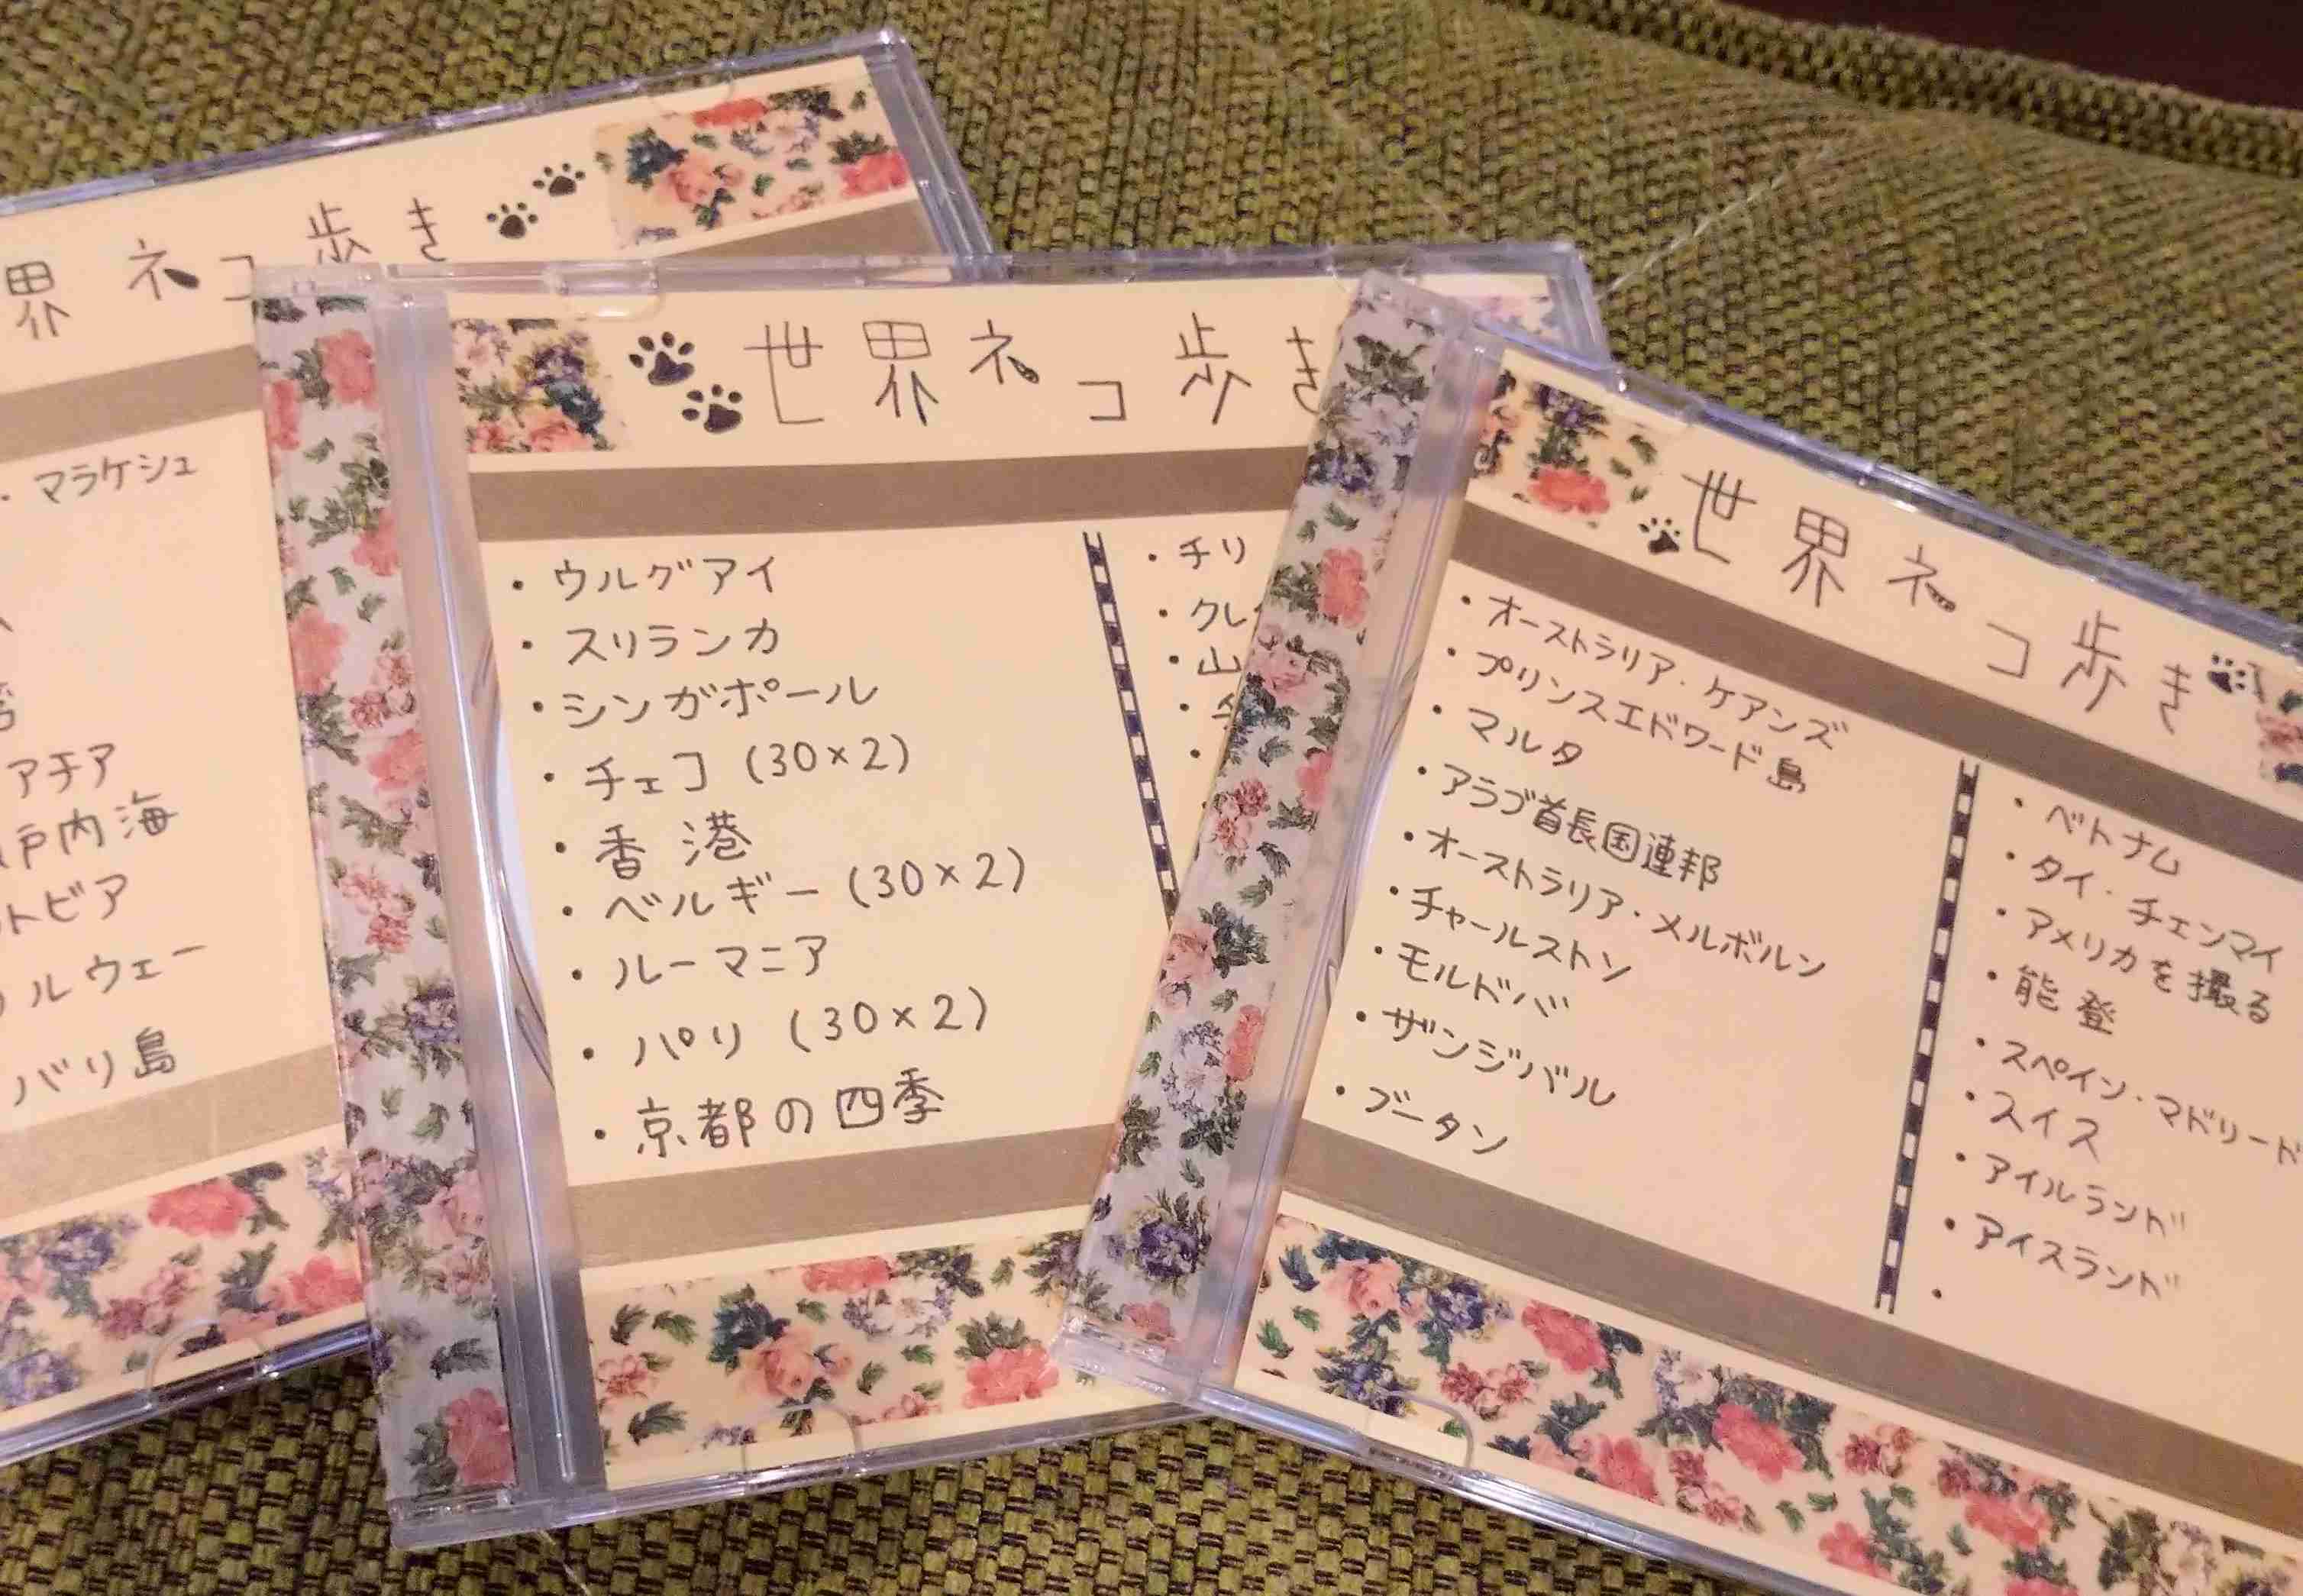 界 ネコ 歩き
・マラケシュ
アチア
戸内海
トビア
ルウェー
バリ島
世界ネコ歩き
・ウルグアイ
・スリランカ
・シンガポール
・チェコ (30×2)
・香港
・ベルギー (30×2)
・ルーマニア
・パリ (30×2)
・京都の四季
・チリ
・クレ
・山
世界ネコ歩き
・オーストラリア・ケアンズ
・プリンスエドワード島
・マルタ
・アラブ首長国連邦
・オーストラリア・メルボルン
・チャールストン
・モルドバ
・ザンジバル
・ブータン
・ベトナム
・タイ・チェンマイ
・アメリカを撮る
・能登
・スペイン・マドリード
・スイス
・アイルランド
・アイスランド
・